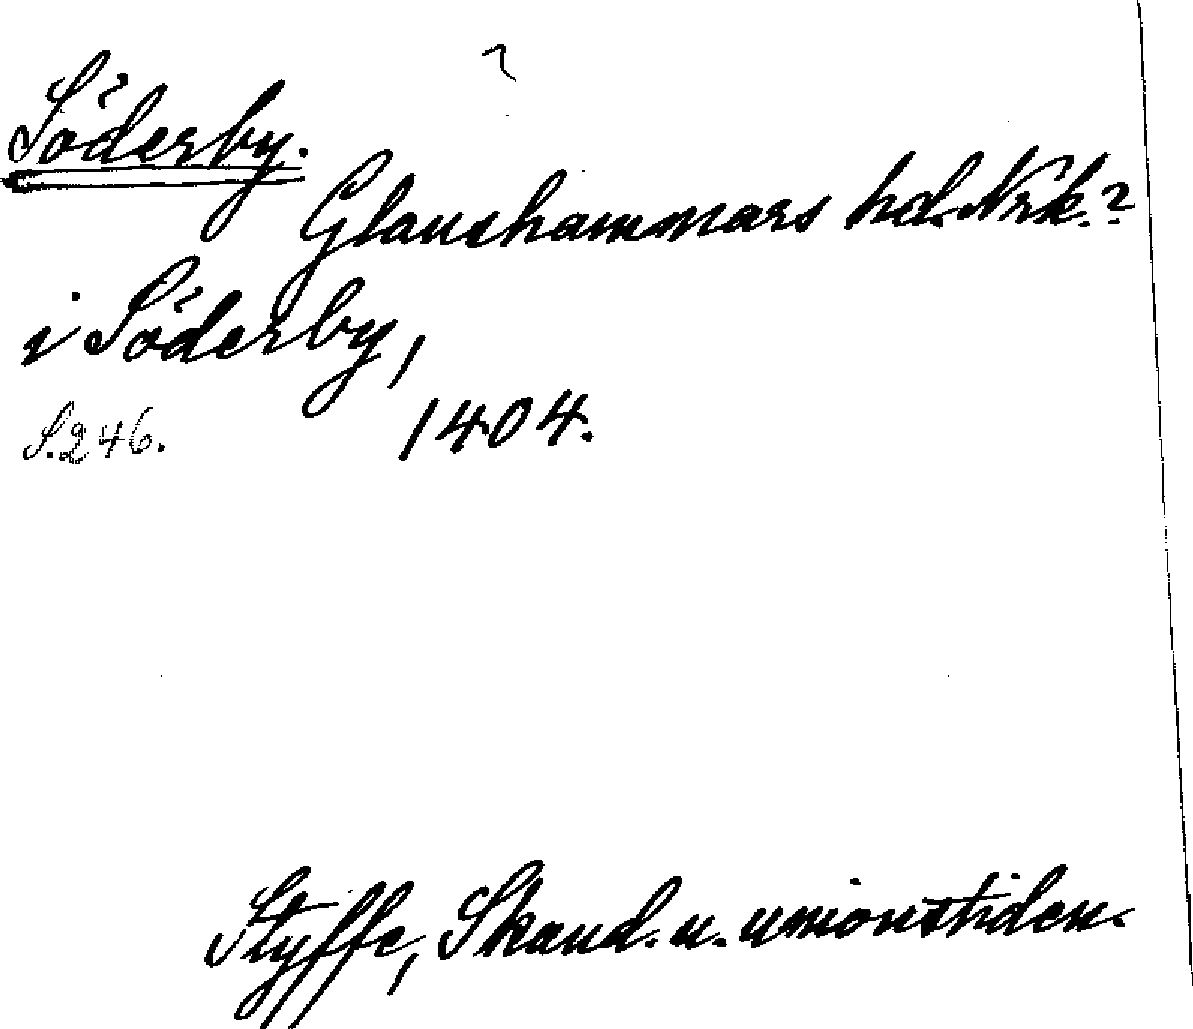 Söderby.
Glanshammars hd. Nrk.?
i Söderby,
S. 246. 1404.
Styffe, Skand. u. unionstiden.